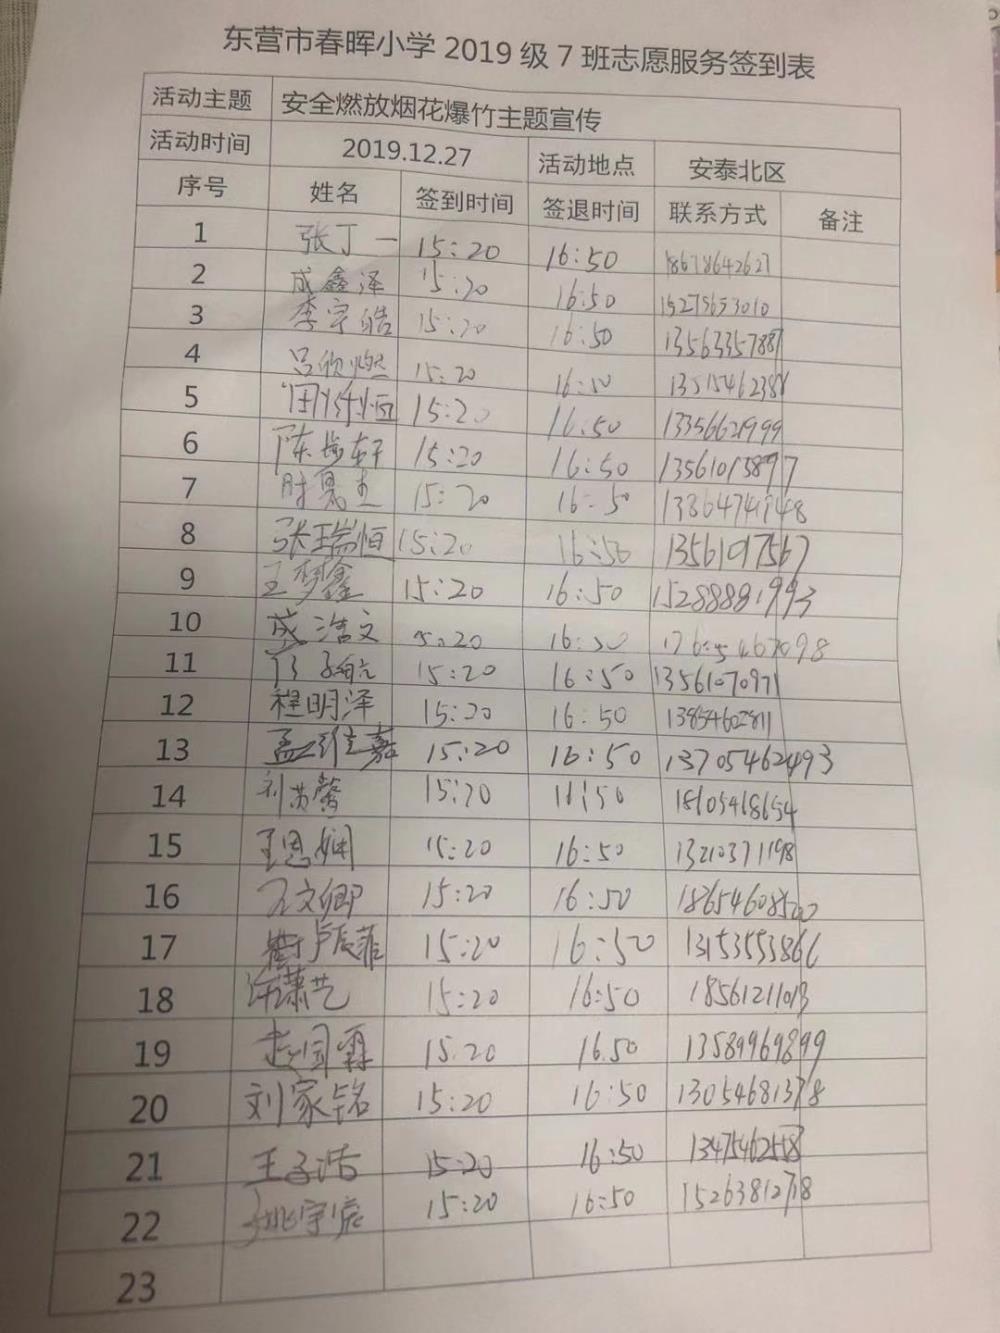 东营市春晖小学 2019 级 7 班志愿服务签到表
活动主题 安全燃放烟花爆竹主题宣传
活动时间 2019.12.27 活动地点 安泰北区
序号 姓名 签到时间 签退时间 联系方式 备注
1 张丁一 15:20 16:50 18678642627
2 成鑫泽 15:20 16:50 15275653010
3 李宇皓 15:20 16:50 13563357887
4 吕欣燃 15:20 16:50
5 15:20 16:50 13356621999
6 15:20 16:50 13561013897
7 15:20 16:50 13864741748
8 张瑞恒 15:20 16:50 13561017567
9 王梦鑫 15:20 16:50 15288881993
10 成浩文 15:20 16:50
11 15:20 16:50 13561070971
12 程明泽 15:20 16:50 13854602811
13 孟维嘉 15:20 16:50 13705462493
14 刘芮馨 15:20 16:50 18605468654
15 王思娴 15:20 16:50 13210371198
16 文卿 15:20 16:50 18654608520
17 卢辰菲 15:20 16:50 13153553866
18 潇艺 15:20 16:50 18561211013
19 赵国霖 15.20 16.50 13589969899
20 刘家铭 15:20 16:50 13054681378
21 王子浩 15:20 16:50 13475462558
22 姚宇宸 15:20 16:50 15263812718
23